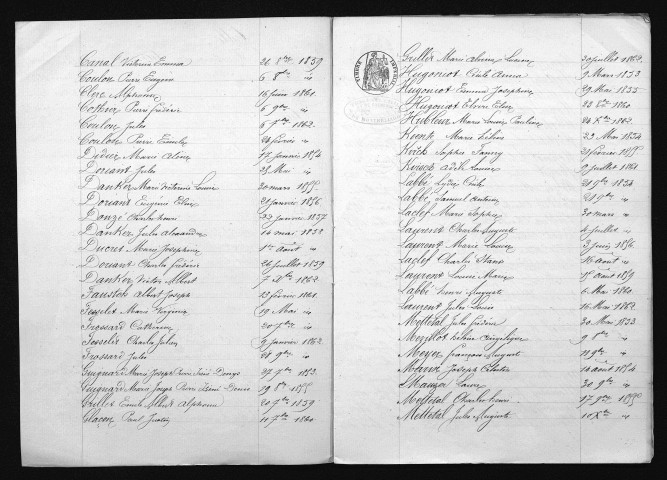 Canal Victorie Emma 26 8bre 1859
Coulon Pierre Eugène 6 8bre id
Clerc Alphonse 16 Juin 1861
Cottner Pierre Frédéric 6 9bre id
Coulon Jules 6 Xbre 1862
Coulon Pierre Emile 24 février id
Didier Marie Aline 17 Janvier 1854
Doriant Jules 28 Mai id
Danker Marie Victorine Louise 30 mars 1855
Doriant Eugénie Elise 21 Janvier 1856
Donzé Charles henri 22 Janvier 1857
Danker Jules Alexandre 14 mai 1858
Ducret Marie Joséphine 1er Août id
Douant Charles Frédéric 26 Juillet 1859
Danker Victor Albert 7 Xbre 1862
Faustch Albert Joseph 13 février 1861
Fesseler Marie Virginie 19 Mai id
Frossard Catherine 20 7bre id
Fesseler Charles Julien 9 Janvier 1862
Frossard Jules 28 9bre id
Guignard Marie Joseph Pierre 27 9bre 1853
Guignard Marie Joseph Pierre Rémi 19 8bre 1855
Grillet Emile Albert Alphonse 20 7bre 1859
Glacon Paul Justin 10 7bre 1860
TIMBRE IMPERIAL
Grillet Marie Aline Louise 30 Juillet 1862
Hugoniot Cécile Anna 9 Mars 1853
Hugoniot Emma Joséphine 29 Mars 1855
Hugoniot Pierre 23 8bre 1860
Hubleur Marie Louise Pauline 24 Xbre 1862
Kuentz Marie 23 Mai 1854
Sophie Fanny 21 février 1855
Adèle Louise 9 Juillet 1861
Labbé Lydie 21 9bre 1854
Labbé Samuel 21 9bre id
Laclef Marie Sophie 30 mars id
Laurent Charles Auguste 4 Juillet id
Laurent Marie Louise 3 Juin 1856
Laclef Charles 16 Août id
Laurent Louise Marie 15 Août 1859
Labbé Henri Auguste 6 Mai 1860
Laurent Jules Louis 16 Mai 1862
Mettetal Jules Frédéric 30 Mai 1853
Angélique 9 8bre id
Meyer François Auguste 11 9bre id
Joseph 14 août 1854
Louise 30 9bre id
Mettetal Charles henri 17 9bre 1855
Mettetal Jules Auguste 10 Xbre id